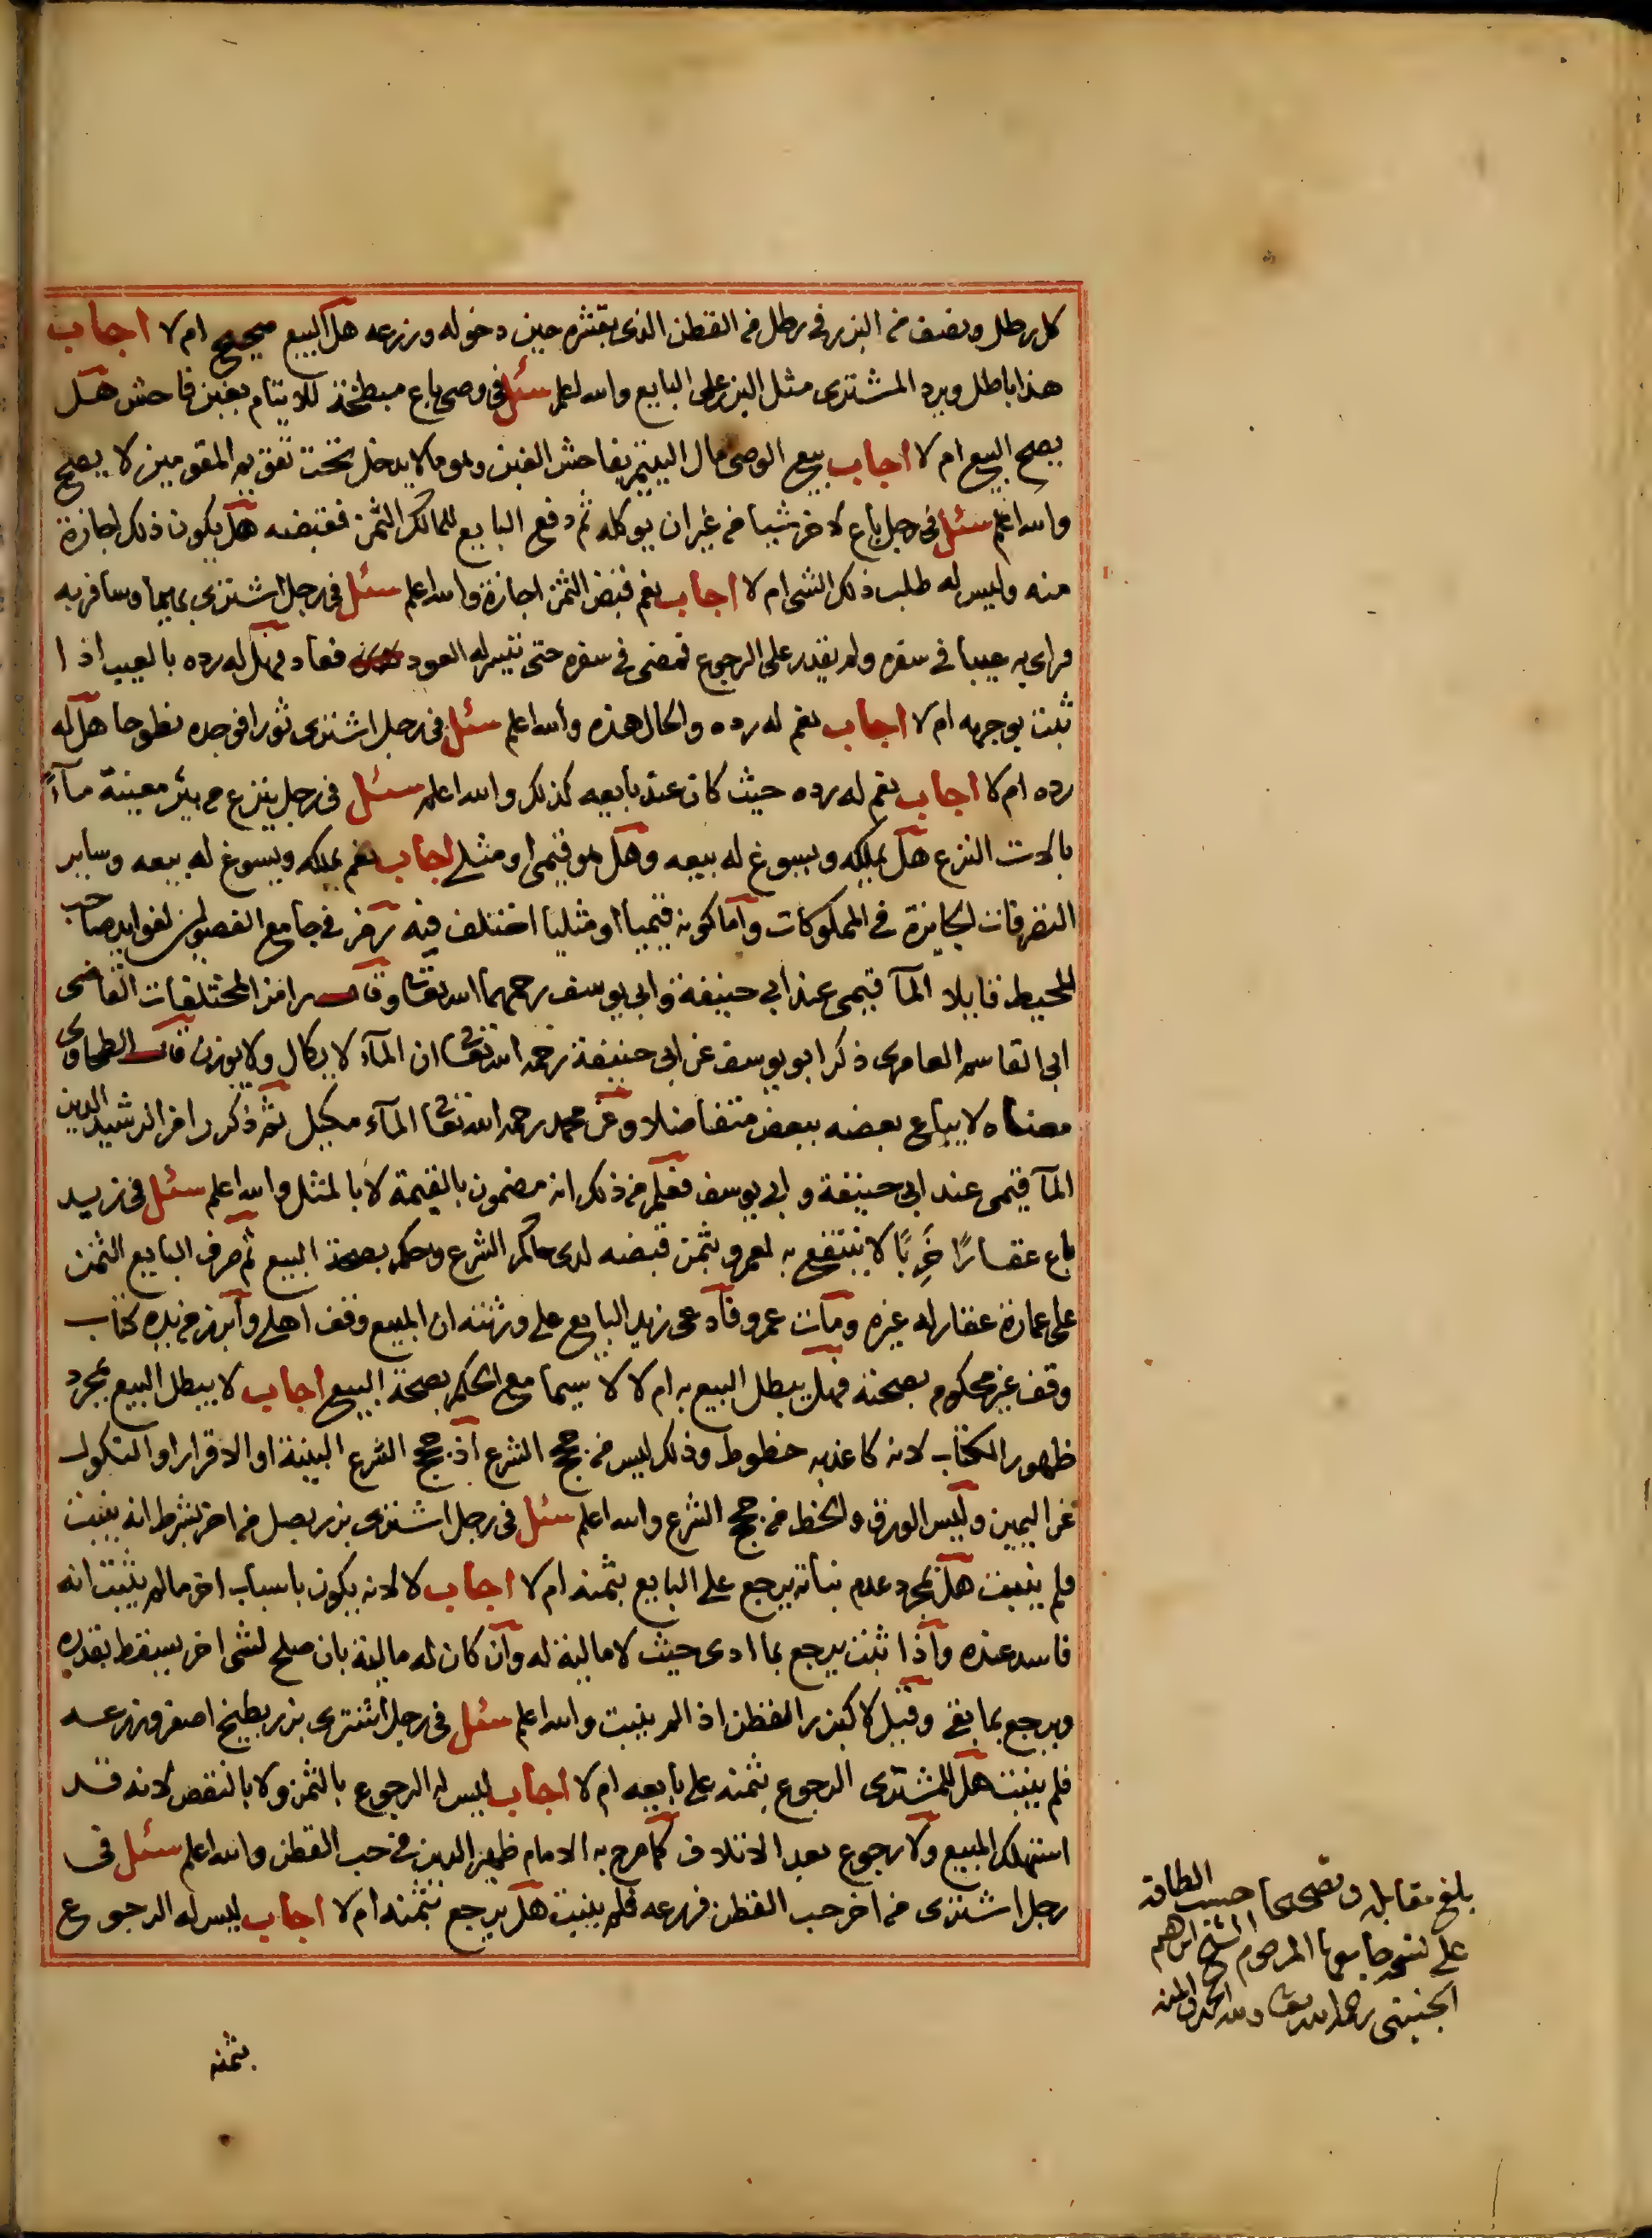 كل رطل ونصف من البزر في رطل من القطن الذي بقشره حين دخوله وزرعه هل البيع صحيح ام لا اجاب
هذا باطل ويرد المشتري مثل البزر على البايع والله اعلم سئل في وصي باع مبطخة للايتام بغبن فاحش هل
يصح البيع ام لا اجاب بيع الوصي مال اليتيم بفاحش الغبن وهو ما لا يدخل تحت تقويم المقومين لا يصح
والله اعلم سئل في رجل باع لاخر شيا من غير ان يوكله ثم دفع البايع للمالك الثمن فقبضه هل يكون ذلك اجازة
منه وليس له طلب ذلك الشي ام لا اجاب نعم قبض الثمن اجازة والله اعلم سئل في رجل اشترى بهيما وسافر به
فراى به عيبا في سفره ولم يقدر على الرجوع فمضى في سفره حتى تيسر له العود فعاد فهل له رده بالعيب اذا
ثبت بوجهه ام لا اجاب نعم له رده والحال هذه والله اعلم سئل في رجل اشترى ثورا فوجده نطوحا هل له
رده ام لا اجاب نعم له رده حيث كان عند بايعه كذلك والله اعلم سئل في رجل ينزع من بئر معينة مآءً
بالات النزع هل يملكه ويسوغ له بيعه وهل هو قيمي او مثلي اجاب نعم يملكه ويسوغ له بيعه وساير
التصرفات الجايزة في المملوكات واما كونه قيميا او مثليا اختلف فيه رمز في جامع الفصولين لفوايد صاحب
المحيط قايلا المآ قيمي عند ابي حنيفة وابي يوسف رحمهما الله تعا وقال رامزا لمختلفات القاضي
ابي القاسم العامري ذكر ابو يوسف عن ابي حنيفة رحمه الله تعا ان المآء لا يكال ولا يوزن قال الطحاوي
معناه لا يباع بعضه ببعض متفاضلا وعن محمد رحمه الله تعا المآء مكيل ثم ذكر رامزا لرشيد الدين
المآ قيمي عند ابي حنيفة وابي يوسف فعلم من ذلك انه مضمون بالقيمة لا بالمثل والله اعلم سئل في زيد
باع عقارًا خَرِبًا لا ينتفع به لعمرو بثمن قبضه لدى حاكم الشرع وحكم بصحة البيع ثم صرف البايع الثمن
على عمارة عقار له غيره ومات عمرو فادعى زيد البايع على ورثته ان المبيع وقف اهلي وابرز من يده كتاب
وقف غير محكوم بصحته فهل يبطل البيع به ام لا لا سيما مع الحكم بصحة البيع اجاب لا يبطل البيع بمجرد
ظهور الكتاب لانه كاغد به خطوط وذلك ليس من حجج الشرع اذ حجج الشرع البينة او الاقرار او النكول
عن اليمين وليس الورق والخط من حجج الشرع والله اعلم سئل في رجل اشترى بزر بصل من اخر بشرط انه ينبت
فلم ينبت هل بمجرد عدم نباته يرجع على البايع بثمنه ام لا اجاب لا لانه يكون باسباب اخر ما لم يثبت انه
فاسد عنده واذا ثبت يرجع بما ادى حيث لا مالية له وان كان له مالية بان صلح لشي اخر يسقط بقدره
ويرجع بما بقي وقيل لا كبزر القطن اذا لم ينبت والله اعلم سئل في رجل اشترى بزر بطيخ اصفر وزرعه
فلم ينبت هل للمشتري الرجوع بثمنه على بايعه ام لا اجاب ليس له الرجوع بالثمن ولا بالنقص لانه قد
استهلك المبيع ولا رجوع بعد الاتلاف كما صرح به الامام ظهير الدين في حب القطن والله اعلم سئل في
رجل اشترى من اخر حب القطن فزرعه فلم ينبت هل يرجع بثمنه ام لا اجاب ليس له الرجوع
بثمنه
بلغ مقابلة وتصحيحا حسب الطاقة
على نسخة جامعها المرحوم الشيخ ابراهيم
الجنيني رحمه الله تعا ولله الحمد والمنه